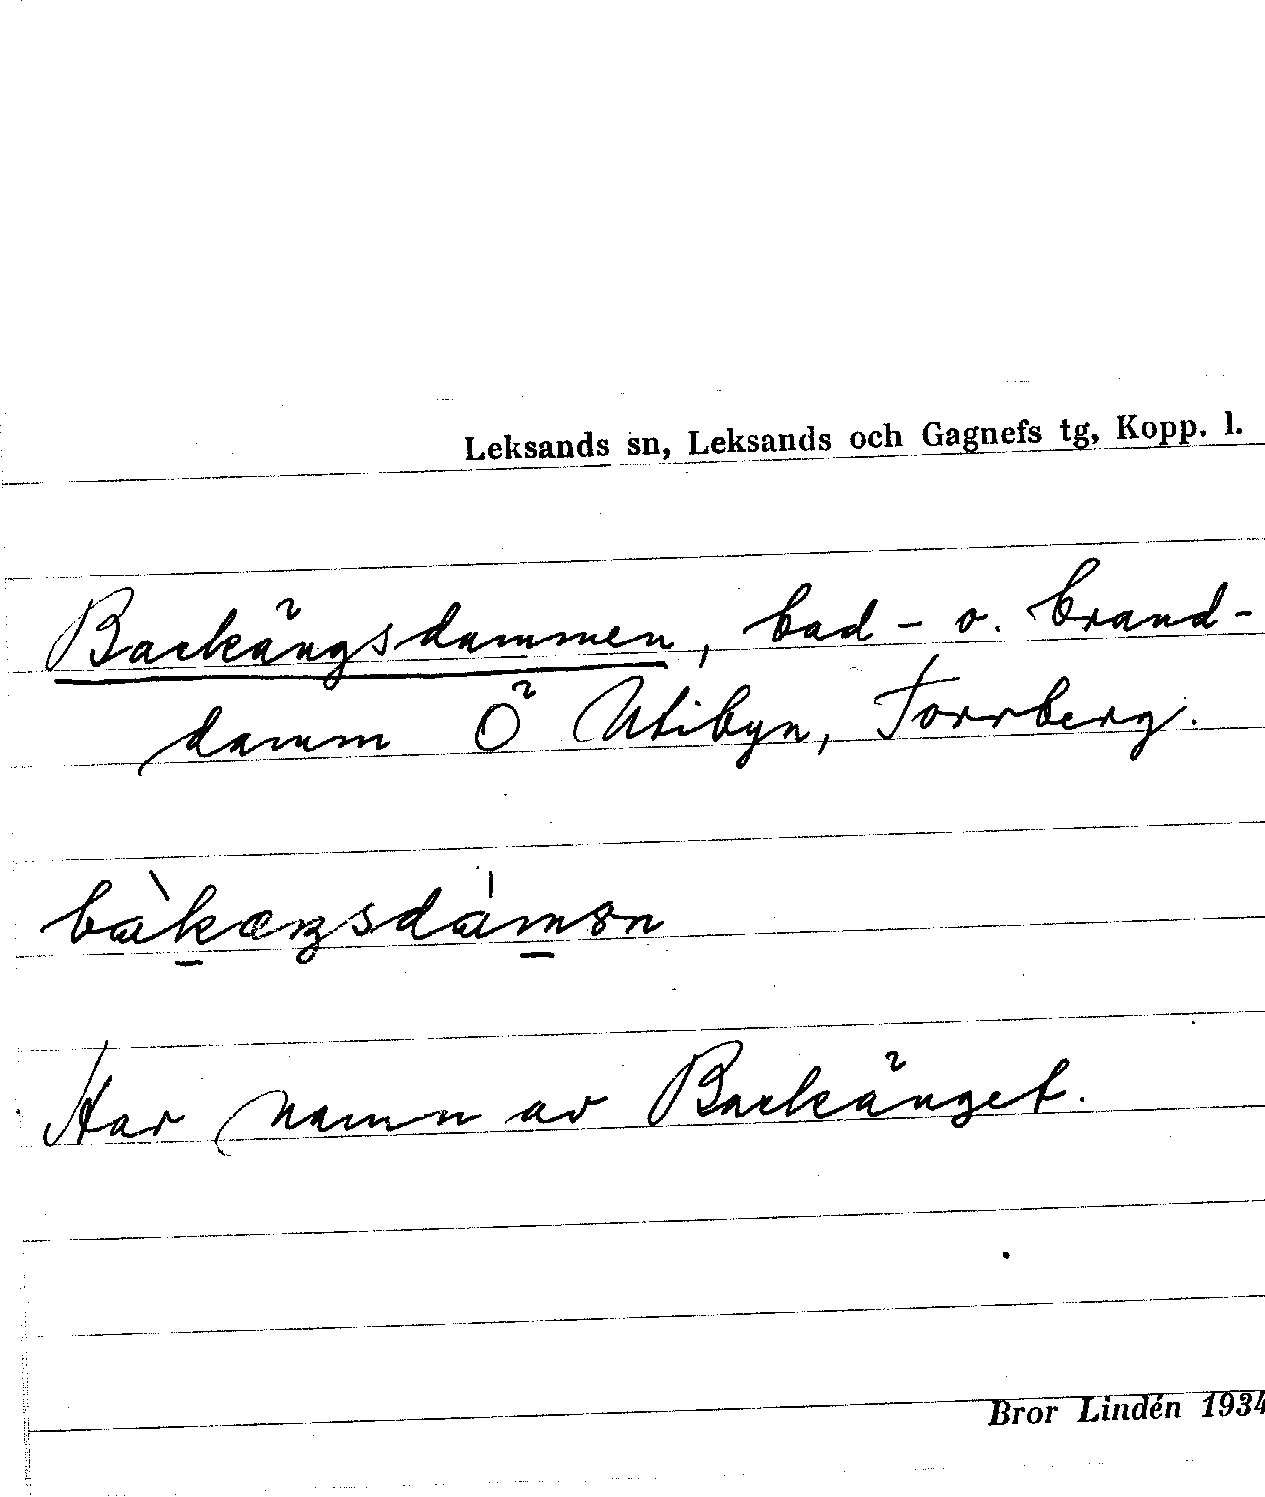 Leksands sn, Leksands och Gagnefs tg, Kopp. l.
Backängsdammen, bad- o. brand-
damm Ö Utibyn, Torrberg.
bàkæŋsdámən
Har namn av Backänget.
Bror Lindén 1934